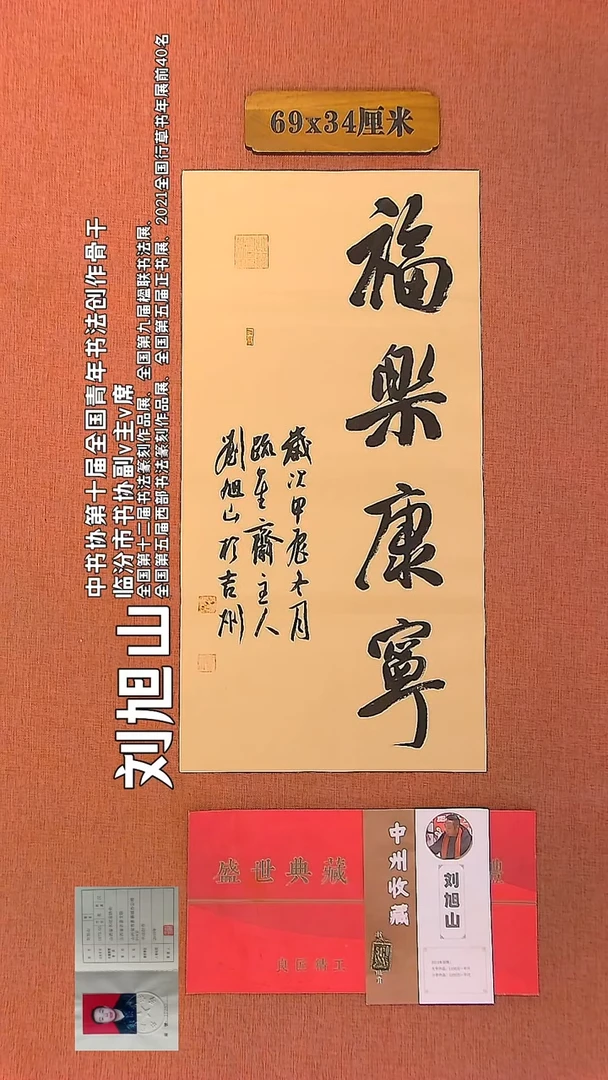 69x34厘米
福樂康寧
歲次甲辰冬月
疏星齋主人
劉旭山於吉州
中书协第十届全国青年书法创作骨干
临汾市书协副v主v席
全国第十二届书法篆刻作品展、全国第九届楹联书法展、
全国第五届西部书法篆刻作品展、全国第五届正书展、2021全国行草书年展前40名
刘旭山
盛世典藏
中州收藏
刘旭山